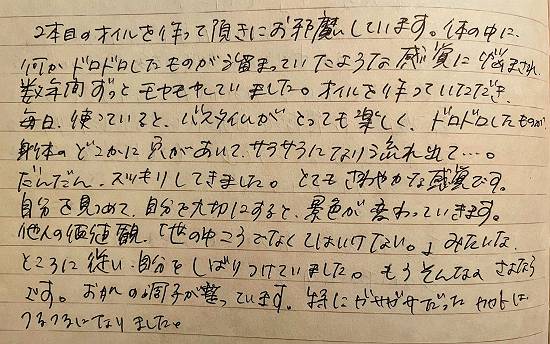 2本目のオイルを作って頂きにお邪魔しています。体の中に、
何かドロドロしたものが溜まっていたような感覚に悩まされ、
数年間ずっとモヤモヤしていました。オイルを作っていただき、
毎日、使っていると、バスタイムがとっても楽しく、ドロドロしたものが
身体のどこかに穴があいて、サラサラになり流れ出て…。
だんだん、スッキリしてきました。とてもさわやかな感覚です。
自分を見つめて、自分を大切にすると、景色が変わっていきます。
他人の価値観、「世の中こうでなくてはいけない。」みたいな
ところに従い、自分をしばりつけていました。もうそんなのさよなら
です。お肌の調子が整っています。特にガサガサだったカカトは
つるつるになりました。